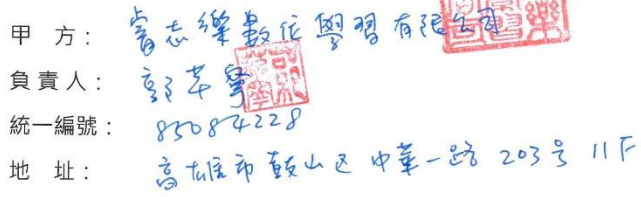 甲 方： 睿志樂數位學習有限公司
負 責 人： 郭芊寧
統一編號： 85084228
地 址： 高雄市鼓山区中華一路203号11F